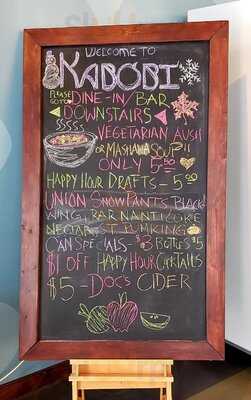 WELCOME TO
KABOBI
PLEASE GO TO DINE-IN/BAR
DOWNSTAIRS
VEGETARIAN AUSH
OR MASHAWA SOUP!!
ONLY 5.50
HAPPY HOUR DRAFTS - 5.00
UNION SNOWPANTS, BLACK
WING, BAR NANTICOKE
NECTAR, ST. PUMKING
CAN SPECIALS - $3 BOTTLES $5
$1 OFF HAPPY HOUR COCKTAILS
$5 - DOC'S CIDER